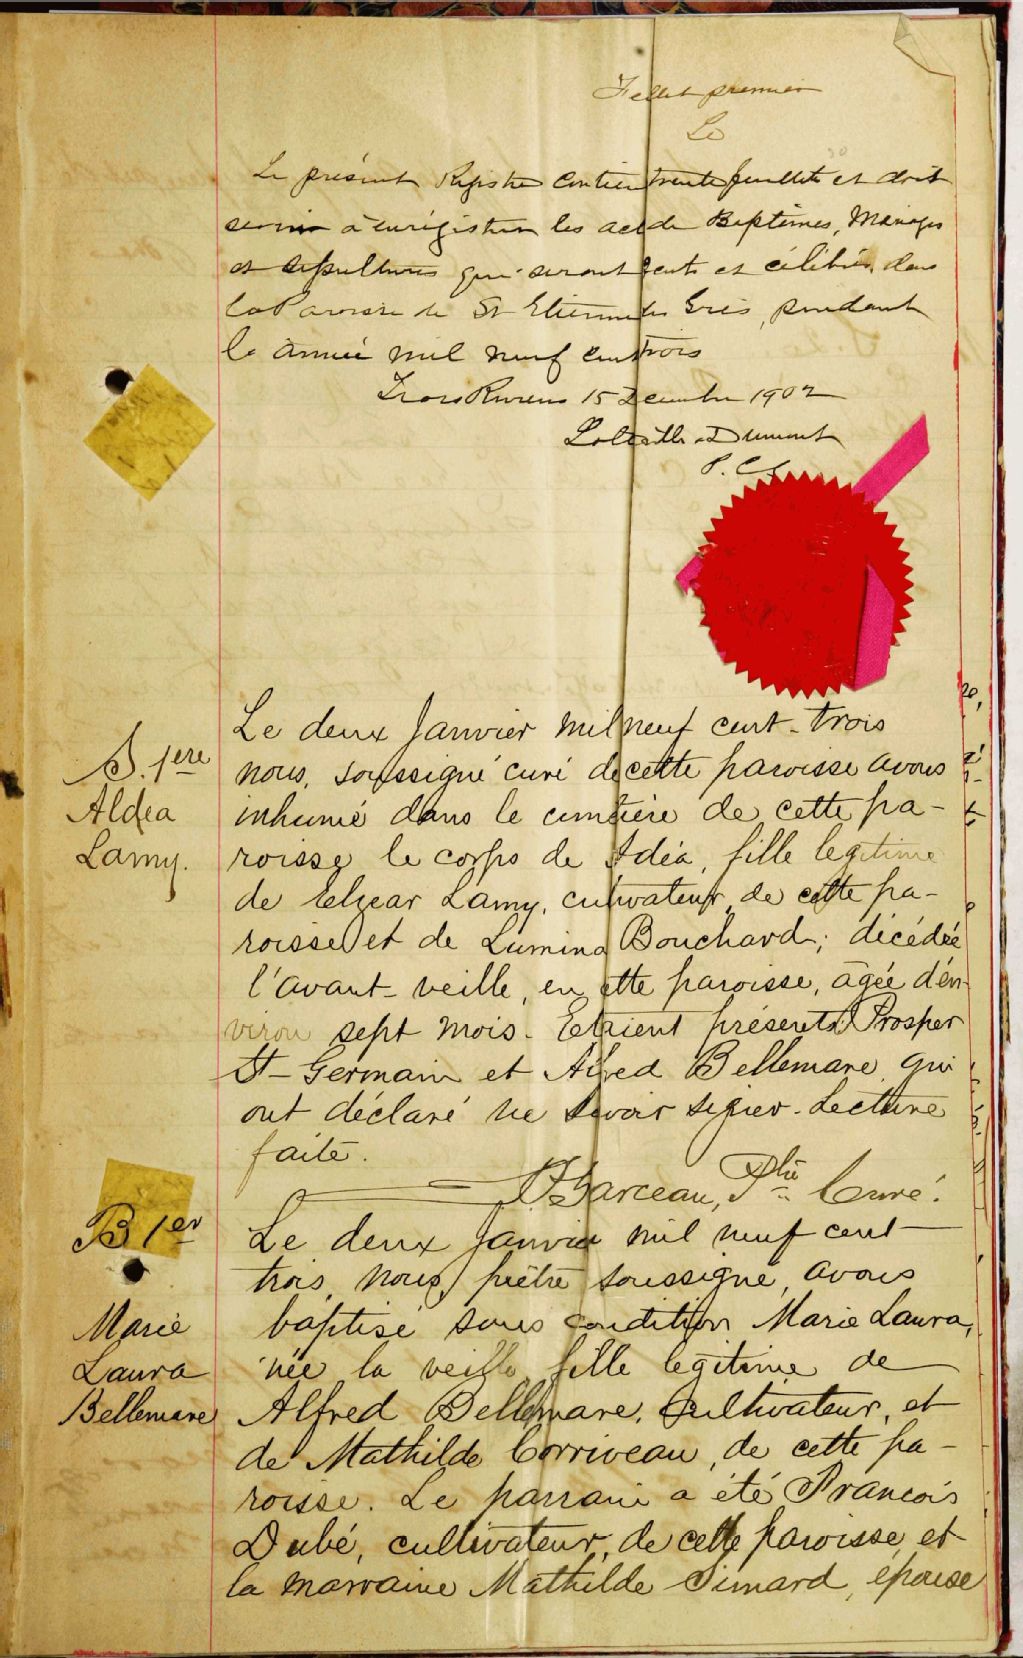 Feuillet premier
Le
Le présent Registre contient trente feuillets et doit
servir à enrégistrer les act de Baptêmes, Mariages
et sépultures qui seront faits et célébrés dans
la Paroisse de St Etienne des Grès, pendant
le année mil neuf cent trois
Trois Rivieres 15 Decembre 1902
Dumont
P. C. S.
S. 1ere
Aldea
Lamy.
Le deux Janvier mil neuf cent-trois
nous, soussigné curé de cette paroisse avons
inhumé dans le cimetière de cette pa-
roisse le corps de Idéa, fille legitime
de Elzear Lamy, cultivateur, de cette pa-
roisse et de Lumina Bouchard; décédée
l'avant-veille, en cette paroisse, âgée d'en-
viron sept mois. Etaient présents: Prosper
St-Germain et Alfred Bellemare qui
ont déclaré ne savoir signer. Lecture
faite.
J. Garceau, Ptre Curé.
B 1er
Marie
Laura
Bellemare
Le deux Janvier mil neuf cent
trois, nous, prêtre soussigné, avons
baptisé sous condition Marie Laura,
née la veille, fille legitime de
Alfred Bellemare, Cultivateur, et
de Mathilde Corriveau, de cette pa-
roisse. Le parrain a été François
Dubé, cultivateur, de cette paroisse, et
la marraine Mathilde Simard, épouse